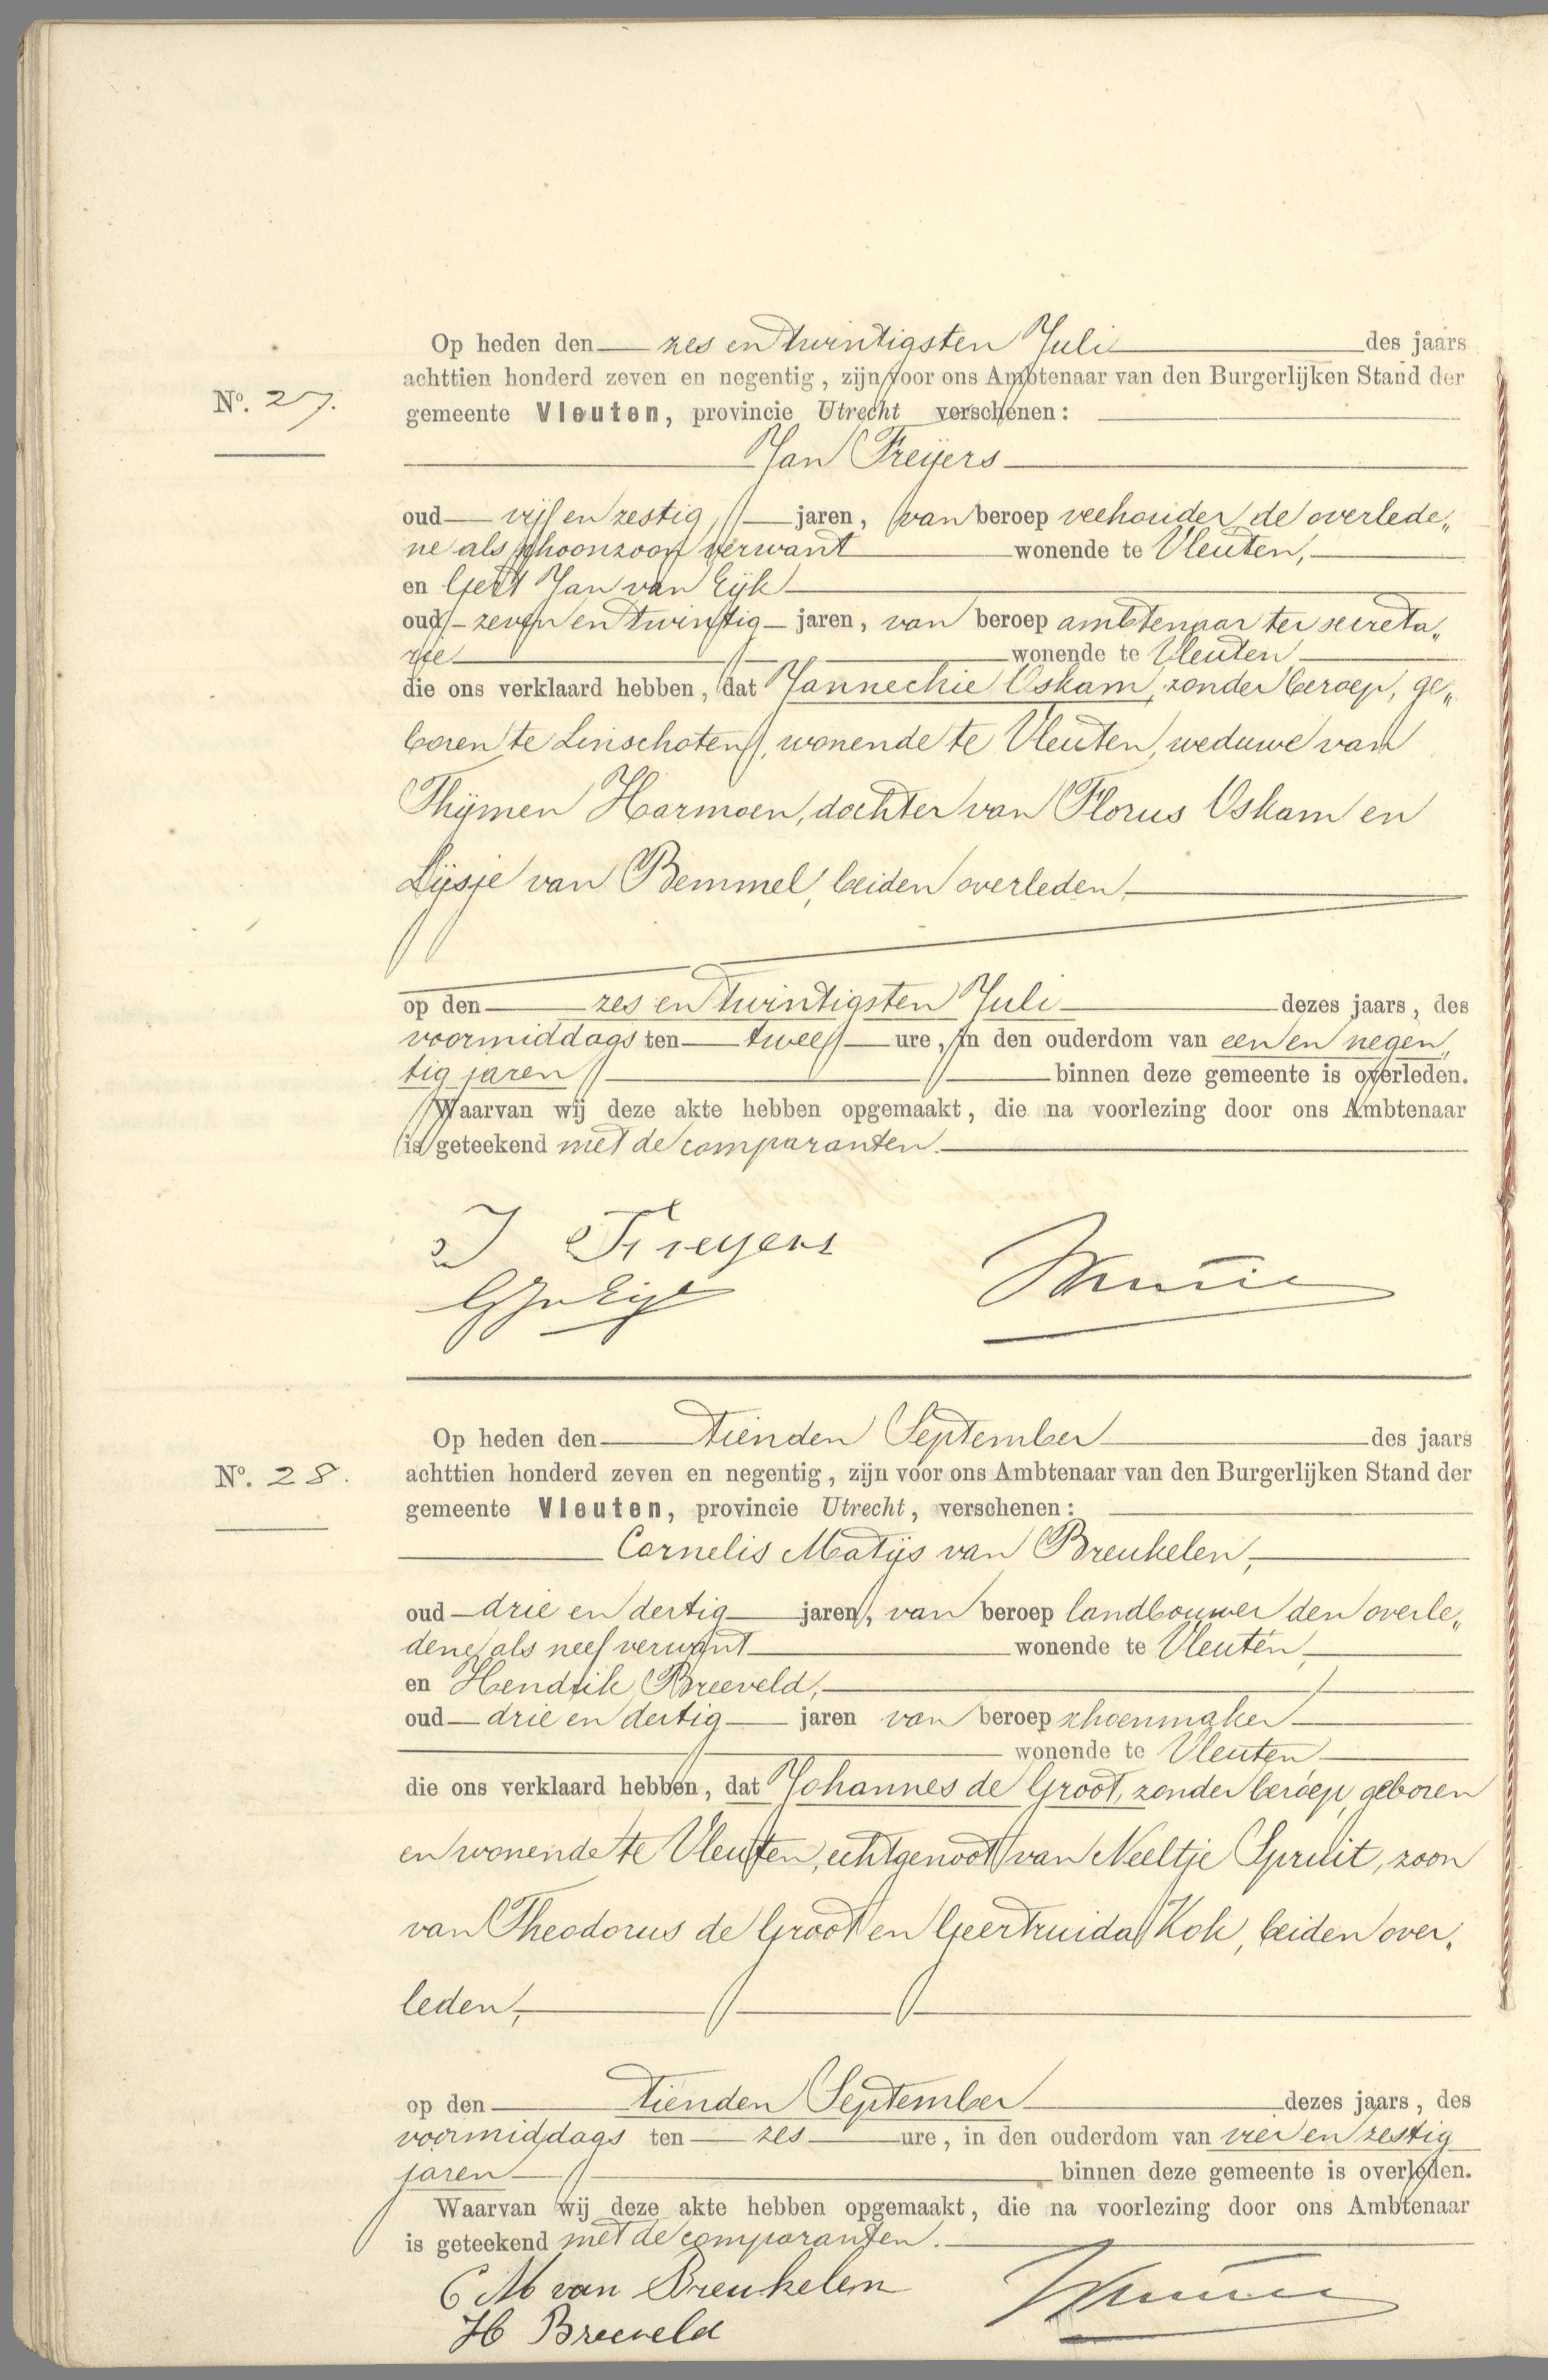 Op heden den zes en twintigsten Juli des jaars
achttien honderd zeven en negentig, zijn voor ons Ambtenaar van den Burgerlijken Stand der
Nº. 27.
gemeente Vleuten, provincie Utrecht verschenen:
Jan Freijers
oud vijf en zestig, jaren, van beroep veehouder, de overlede„
ne als schoonzoon verwant wonende te Vleuten,
en Gert Jan van Eijk
oud zeven en twintig jaren, van beroep ambtenaar ter secreta„
rie wonende te Vleuten
die ons verklaard hebben, dat Jannechie Oskam, zonder beroep, ge„
boren te Linschoten, wonende te Vleuten, weduwe van
Thijmen Harmoen, dochter van Florus Oskam en
Lijsje van Bemmel, beiden overleden,
op den zes en twintigsten Juli dezes jaars, des
voormiddags ten twee ure, in den ouderdom van een en negen„
tig jaren binnen deze gemeente is overleden.
Waarvan wij deze akte hebben opgemaakt, die na voorlezing door ons Ambtenaar
is geteekend met de comparanten.
J Freyers
GJv Eijk
Op heden den tienden September des jaars
Nº. 28.
achttien honderd zeven en negentig, zijn voor ons Ambtenaar van den Burgerlijken Stand der
gemeente Vleuten, provincie Utrecht, verschenen:
Cornelis Matijs van Breukelen,
oud drie en dertig jaren, van beroep landbouwer den overle„
dene als neef verwant wonende te Vleuten,
en Hendrik Breeveld,
oud drie en dertig jaren van beroep schoenmaker
wonende te Vleuten
die ons verklaard hebben, dat Johannes de Groot, zonder beroep, geboren
en wonende te Vleuten, echtgenoot van Neeltje Spruit, zoon
van Theodorus de Groot en Geertruida Kok, beiden over„
leden,
op den tienden September dezes jaars, des
voormiddags ten zes ure, in den ouderdom van vier en zestig
jaren binnen deze gemeente is overleden.
Waarvan wij deze akte hebben opgemaakt, die na voorlezing door ons Ambtenaar
is geteekend met de comparanten.
C M van Breukelen
H Breeveld